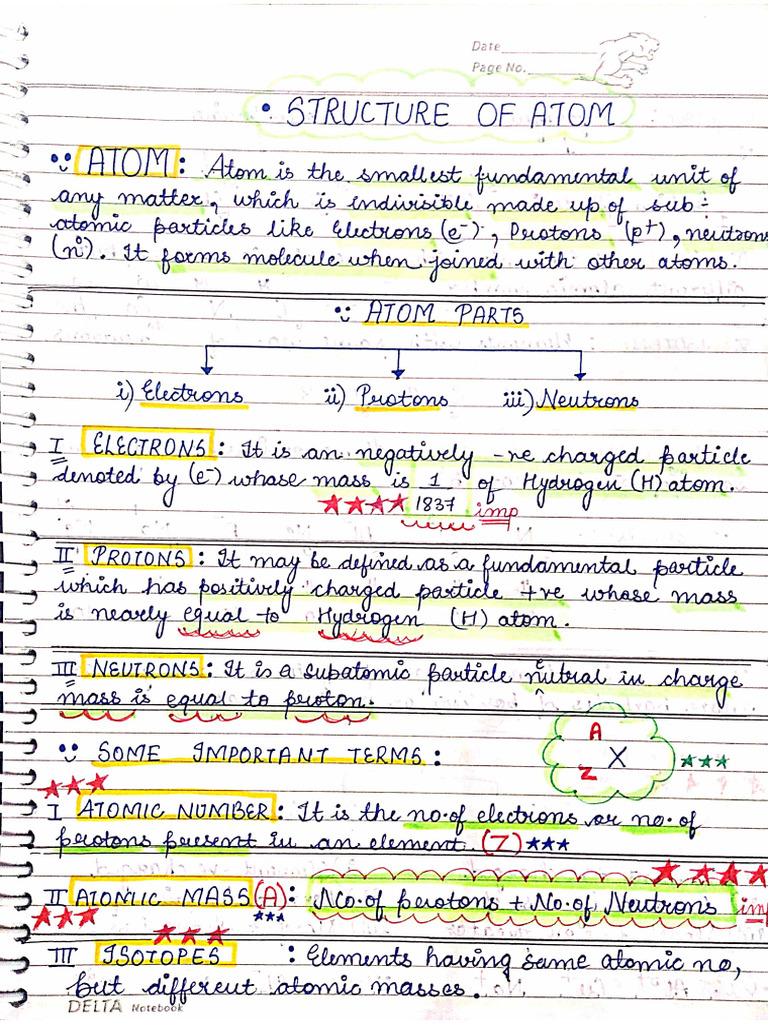 Date
Page No.
• STRUCTURE OF ATOM
ATOM: Atom is the smallest fundamental unit of
any matter, which is indivisible made up of sub-
atomic particles like Electrons (e⁻), Protons (p⁺), neutrons
(n⁰). It forms molecule when joined with other atoms.
ATOM PARTS
i) Electrons ii) Protons iii) Neutrons
I ELECTRONS: It is an negatively -ve charged particle
denoted by (e⁻) whose mass is 1/1837 of Hydrogen (H) atom.
imp
II PROTONS: It may be defined as a fundamental particle
which has positively charged particle +ve whose mass
is nearly equal to Hydrogen (H) atom.
III NEUTRONS: It is a subatomic particle neutral in charge
mass is equal to proton.
SOME IMPORTANT TERMS:
A
Z X
I ATOMIC NUMBER: It is the no. of electrons or no. of
protons present in an element. (Z)
II ATOMIC MASS (A): No. of protons + No. of Neutrons imp
III ISOTOPES : Elements having same atomic no,
but different atomic masses.
DELTA Notebook